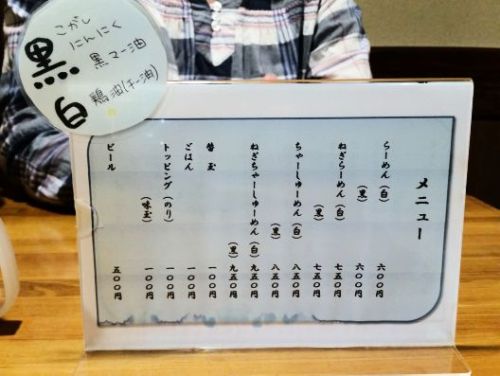 こがし
にんにく
黒 黒マー油
白 鶏油(チー油)
メニュー
らーめん (白) 六〇〇円
(黒) 六〇〇円
ねぎらーめん (白) 七五〇円
(黒) 七五〇円
ちゃーしゅーめん (白) 八五〇円
(黒) 八五〇円
ねぎちゃーしゅーめん (白) 九五〇円
(黒) 九五〇円
替玉 一〇〇円
ごはん 一〇〇円
トッピング (のり) 一〇〇円
(味玉) 一〇〇円
ビール 五〇〇円